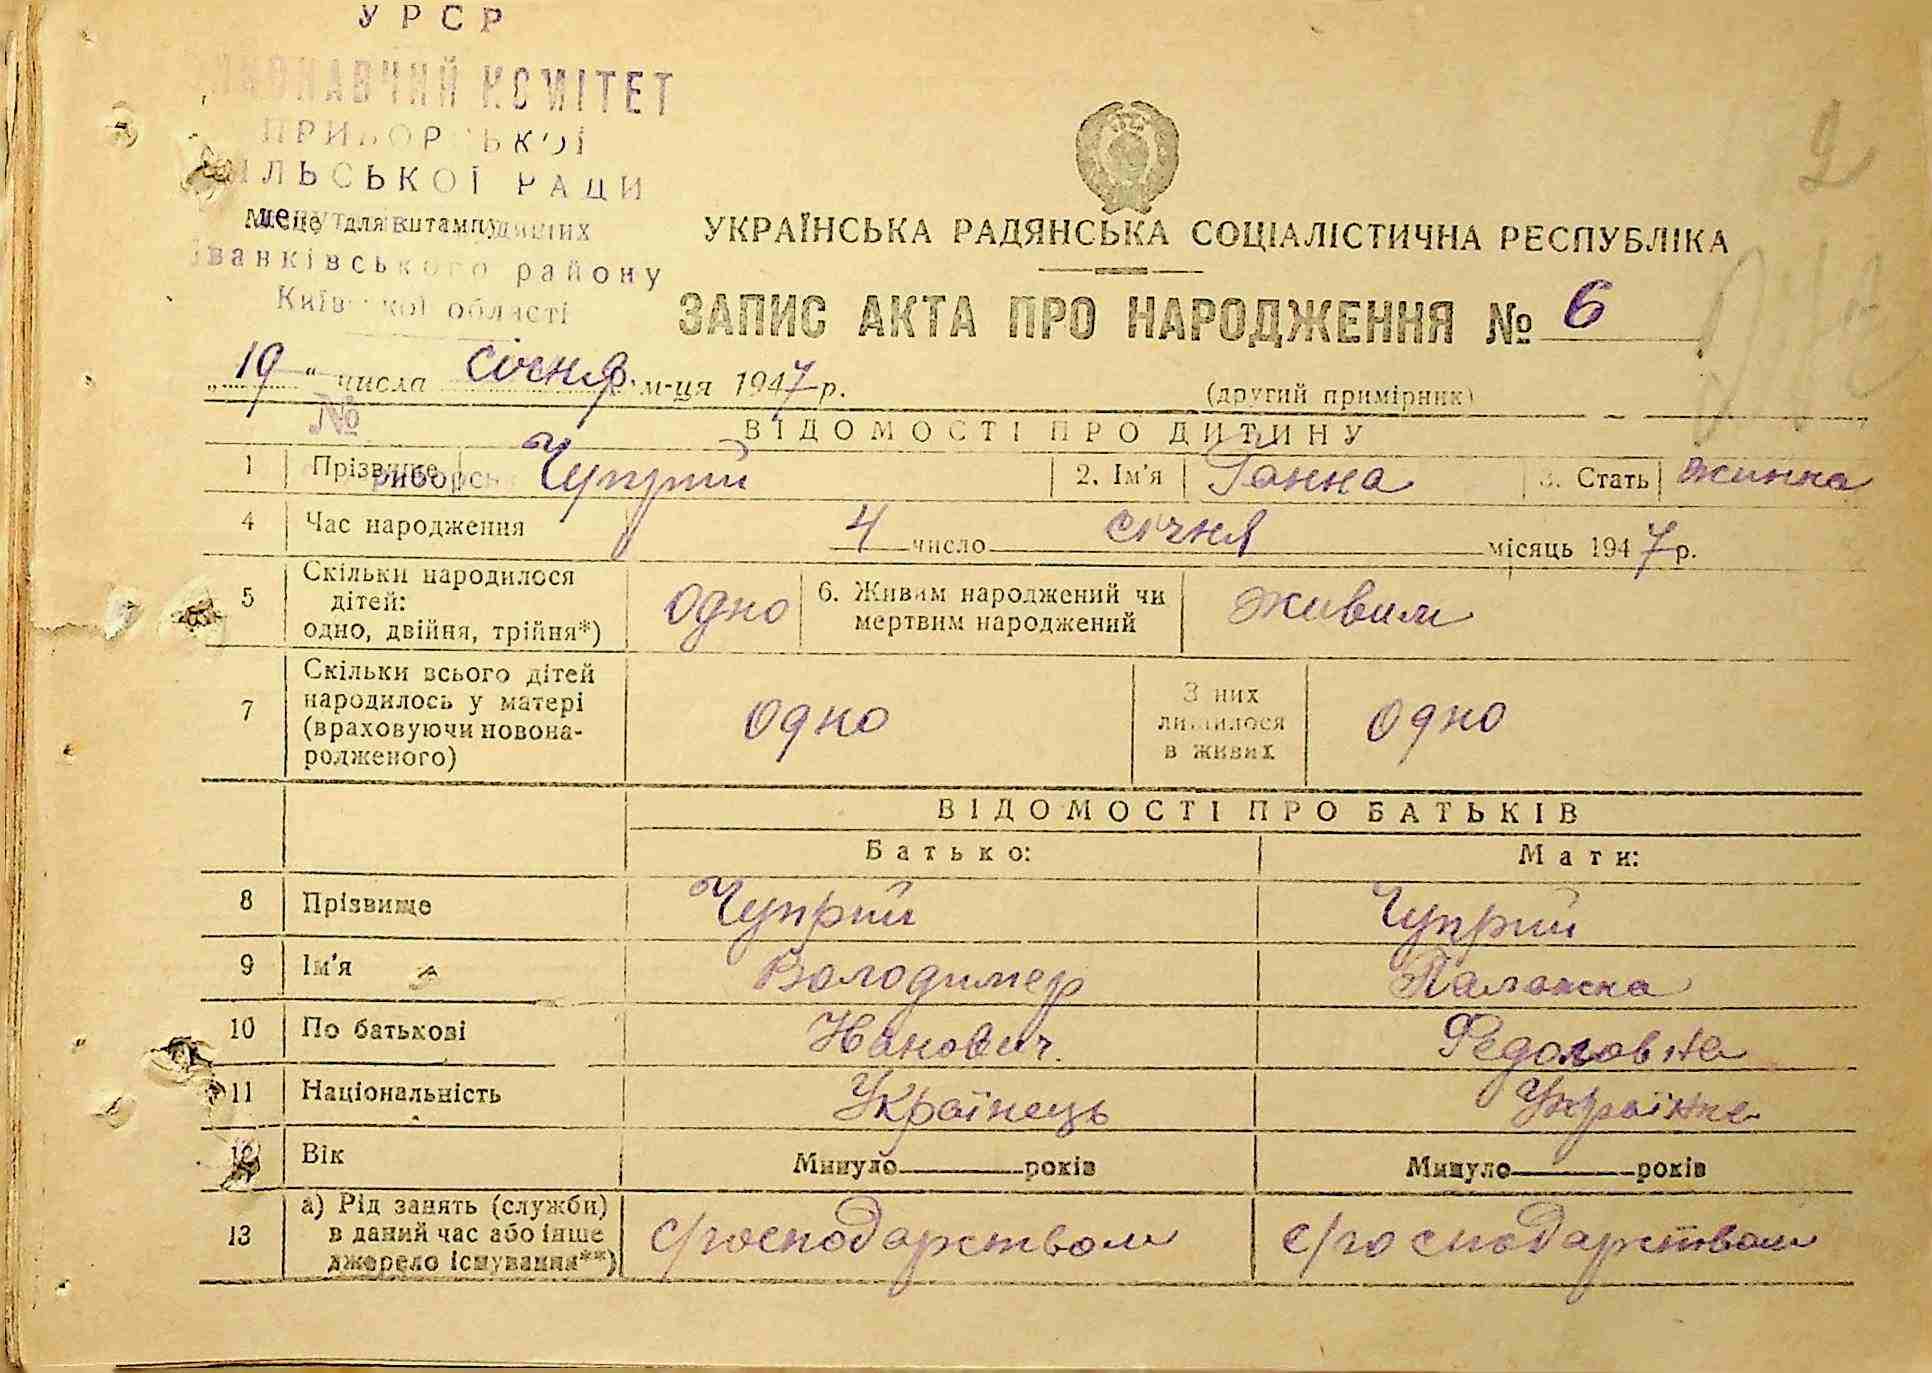 УРСР
ВИКОНАВЧИЙ КОМІТЕТ
ПРИБОРСЬКОЇ
СІЛЬСЬКОЇ РАДИ
Місце для штампу
Іванківського району
Київської області
2
УКРАЇНСЬКА РАДЯНСЬКА СОЦІАЛІСТИЧНА РЕСПУБЛІКА
ЗАПИС АКТА ПРО НАРОДЖЕННЯ № 6
„19“ числа січня м-ця 1947 р. (другий примірник)
№
ВІДОМОСТІ ПРО ДИТИНУ
1 Прізвище Чуприй 2. Ім'я Ганна 3. Стать жинка
4 Час народження 4 число січня місяць 1947 р.
5 Скільки народилося дітей: одно, двійня, трійня*) одно 6. Живим народжений чи мертвим народжений живим
7 Скільки всього дітей народилось у матері (враховуючи новонародженого) одно З них лишилося в живих одно
ВІДОМОСТІ ПРО БАТЬКІВ
Батько: Мати:
8 Прізвище Чуприй Чуприй
9 Ім'я Володимер Палажка
10 По батькові Иванович Федоровна
11 Національність Українець Українка
12 Вік Минуло років Минуло років
13 а) Рід занять (служби) в даний час або інше джерело існування**) с/господарством с/господарством